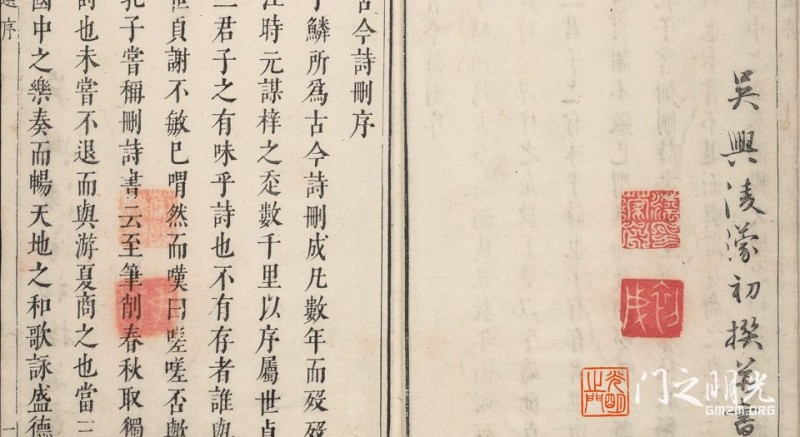 吳興凌濛初撰
光明之門
古今詩刪序
于鱗所爲古今詩刪成凡數年而歿歿
時元謀梓之數千里以序屬世貞
二君子之有味乎詩也不有存者誰與
世貞謝不敏已喟然而嘆曰嗟嗟否歟
孔子嘗稱刪詩書云至筆削春秋取獨
詩也未嘗不退而與游夏商之也當三
國中之樂奏而暢天地之和歌詠盛德
選序
一
门之明光
GMZM.ORG